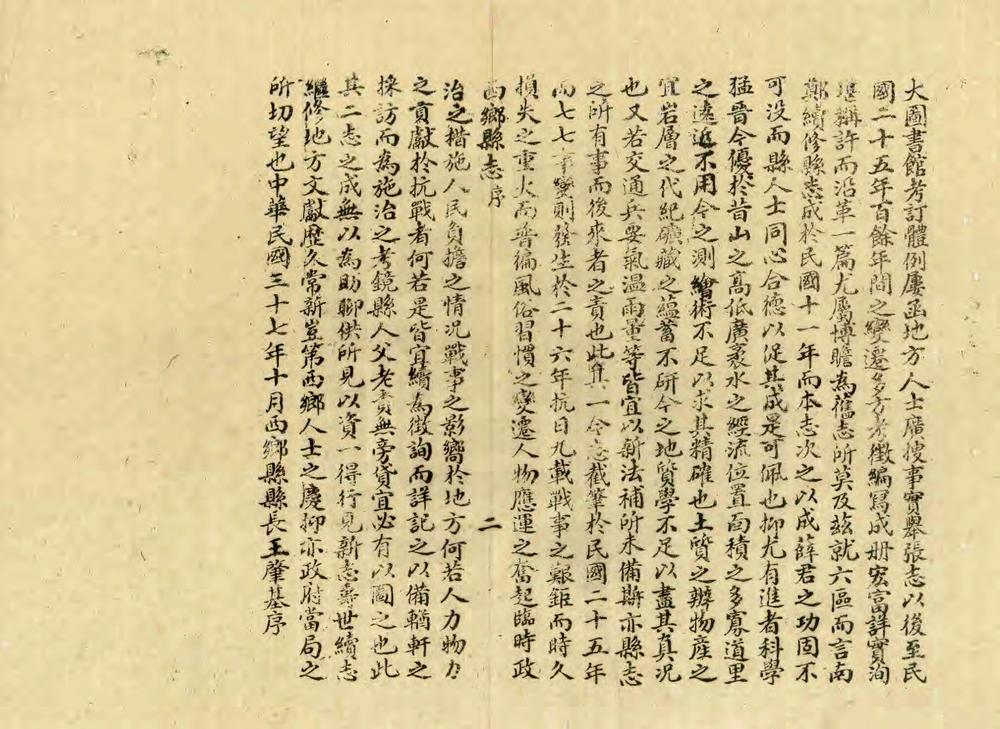 大圖書館考訂體例屢函地方人士廣搜事實舉張志以後至民
國二十五年百餘年間之變遷多方考徵編寫成册宏富詳實洵
堪稱許而沿革一篇尤屬博瞻為舊志所莫及兹就六區而言南
鄭續修縣志成於民國十一年而本志次之以成薛君之功固不
可没而縣人士同心合德以促其成是可佩也抑尤有進者科學
猛晉今優於昔山之高低廣袤水之經流位置面積之多寡道里
之遠近不用今之測繪術不足以求其精確也土質之辨物產之
宜岩層之代紀礦藏之蘊蓄不研今之地質學不足以盡其真况
也又若交通兵要氣温雨量等皆宜以新法補所未備斯亦縣志
之所有事而後來者之責也此其一今志截筆於民國二十五年
而七七事變則發生於二十六年抗日九載戰事之艱鉅而時久
損失之重大而普徧風俗習慣之變遷人物應運之奮起臨時政
西鄉縣志 序 二
治之措施人民負擔之情况戰事之影嚮於地方何若人力物力
之貢獻於抗戰者何若是皆宜續為徵詢而詳記之以備輶軒之
採訪而為施治之考鏡縣人父老責無旁貸宜必有以圖之也此
其二志之成無以為助聊供所見以資一得行見新志壽世續志
繼修地方文獻歷久常新豈第西鄉人士之慶抑亦政府當局之
所切望也中華民國三十七年十月西鄉縣縣長王肇基序